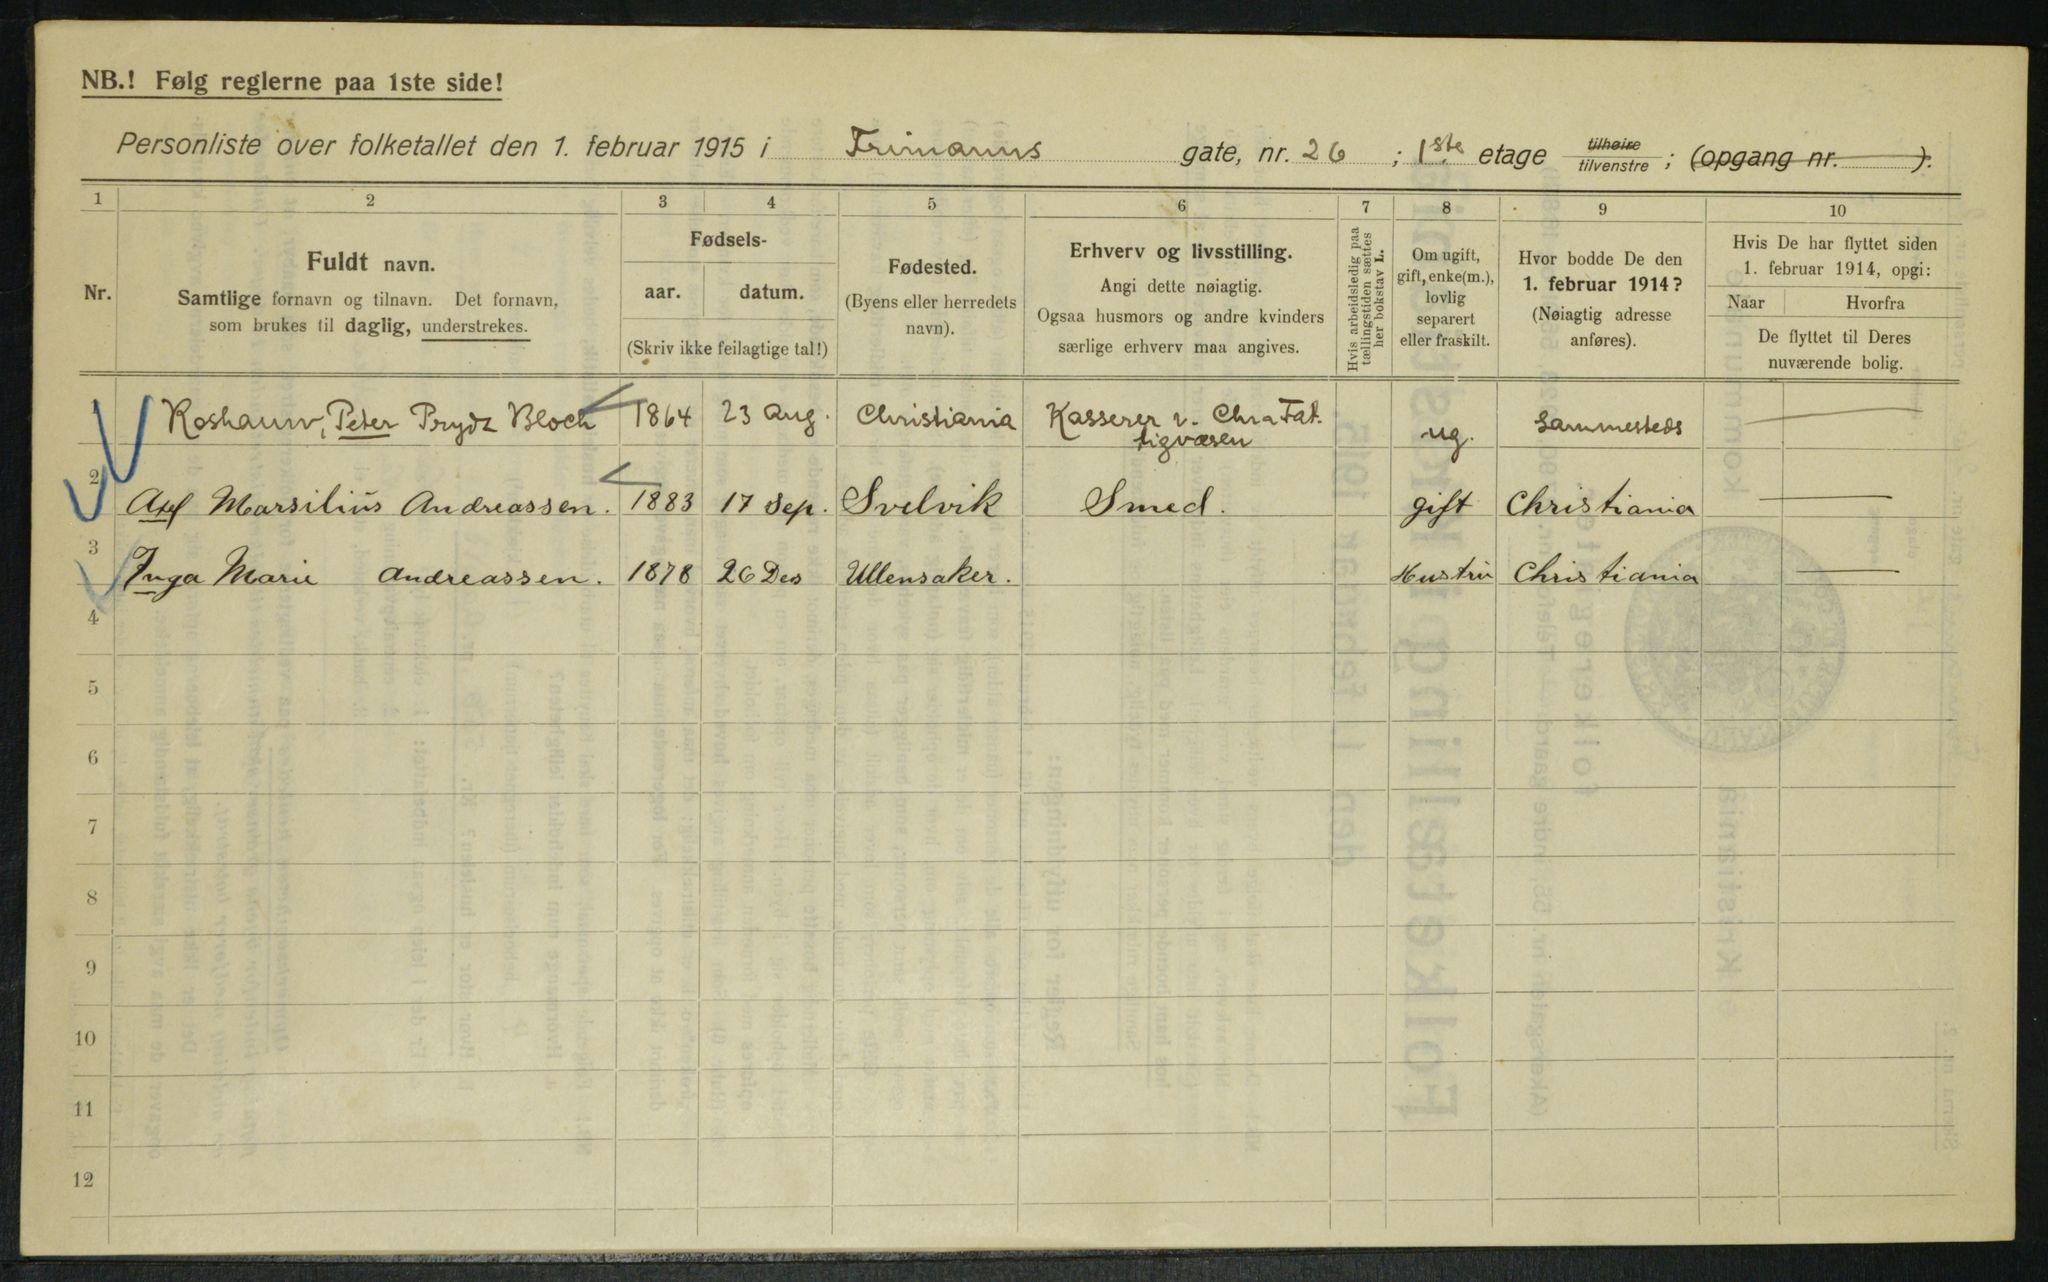 NB.! Følg reglerne paa 1ste side!
Personliste over folketallet den 1. februar 1915 i Frimanns gate, nr. 26 ; 1ste etage tilhøire tilvenstre ; (opgang nr. ).
1 2 3 4 5 6 7 8 9 10
Nr.
Fuldt navn.
Samtlige fornavn og tilnavn. Det fornavn,
som brukes til daglig, understrekes.
Fødsels-
aar. datum.
(Skriv ikke feilagtige tal!)
Fødested.
(Byens eller herredets
navn).
Erhverv og livsstilling.
Angi dette nøiagtig.
Ogsaa husmors og andre kvinders
særlige erhverv maa angives.
Hvis arbeidsledig paa
tællingstiden sættes
her bokstav L.
Om ugift,
gift, enke(m.),
lovlig
separert
eller fraskilt.
Hvor bodde De den
1. februar 1914?
(Nøiagtig adresse
anføres).
Hvis De har flyttet siden
1. februar 1914, opgi:
Naar Hvorfra
De flyttet til Deres
nuværende bolig.
Peter Prydz Bloch 1864 23 Aug. Christiania Kasserer v. Chra Fat-
tigvæsen ug. Sammesteds
2 Axel Marsilius Andreassen. 1883 17 Sep. Svelvik Smed. gift Christiania
3 Inga Marie Andreassen. 1878 26 Des Ullensaker. Hustru Christiania
4
5
6
7
8
9
10
11
12